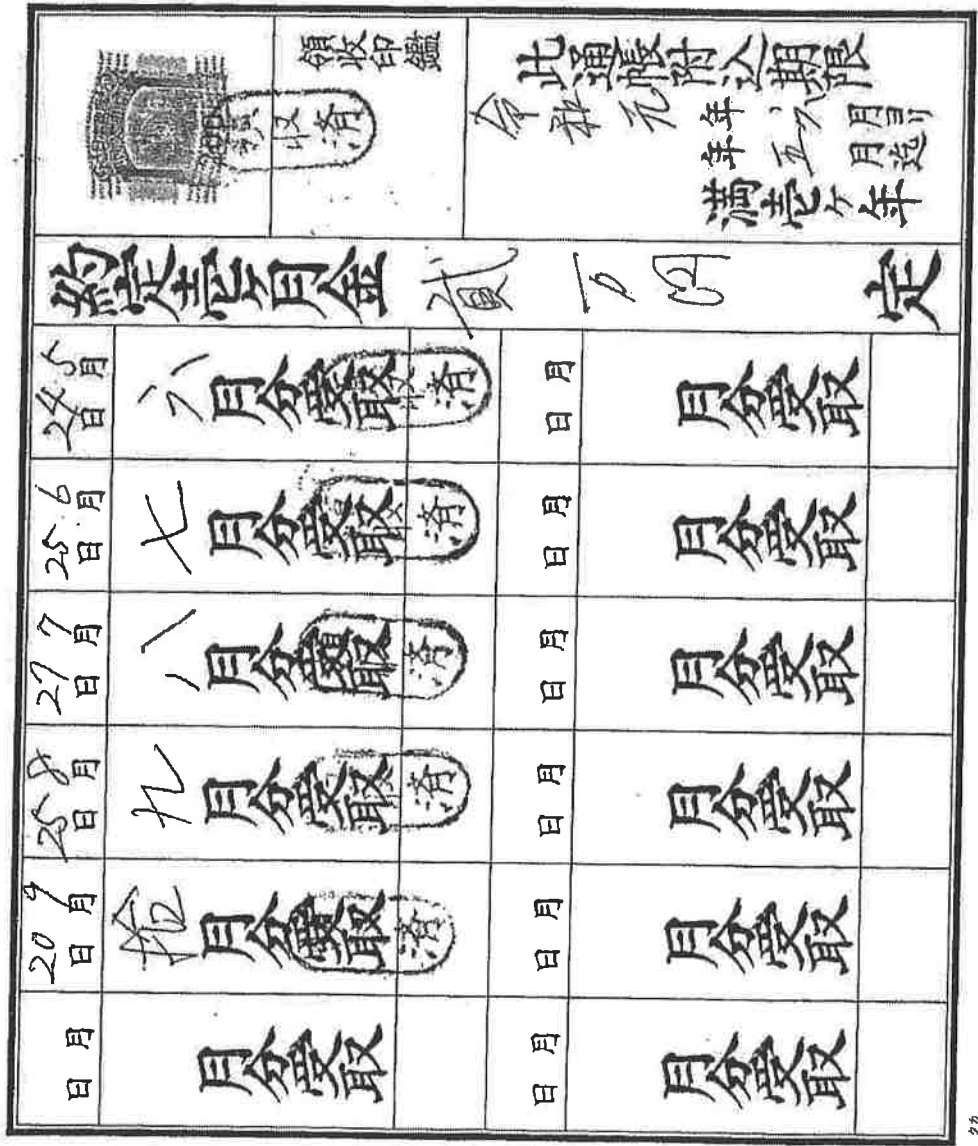 領収印鑑
領収済
此通帳附込期限
令和元年六月ヨリ
年五月迄
満壱ヶ年
約定壱ヶ月金貳万円定
5月24日 六月分受取 領収済
月 日 月分受取
6月25日 七月分受取 領収済
月 日 月分受取
7月27日 八月分受取 領収済
月 日 月分受取
8月25日 九月分受取 領収済
月 日 月分受取
9月20日 拾月分受取 領収済
月 日 月分受取
月 日 月分受取
月 日 月分受取